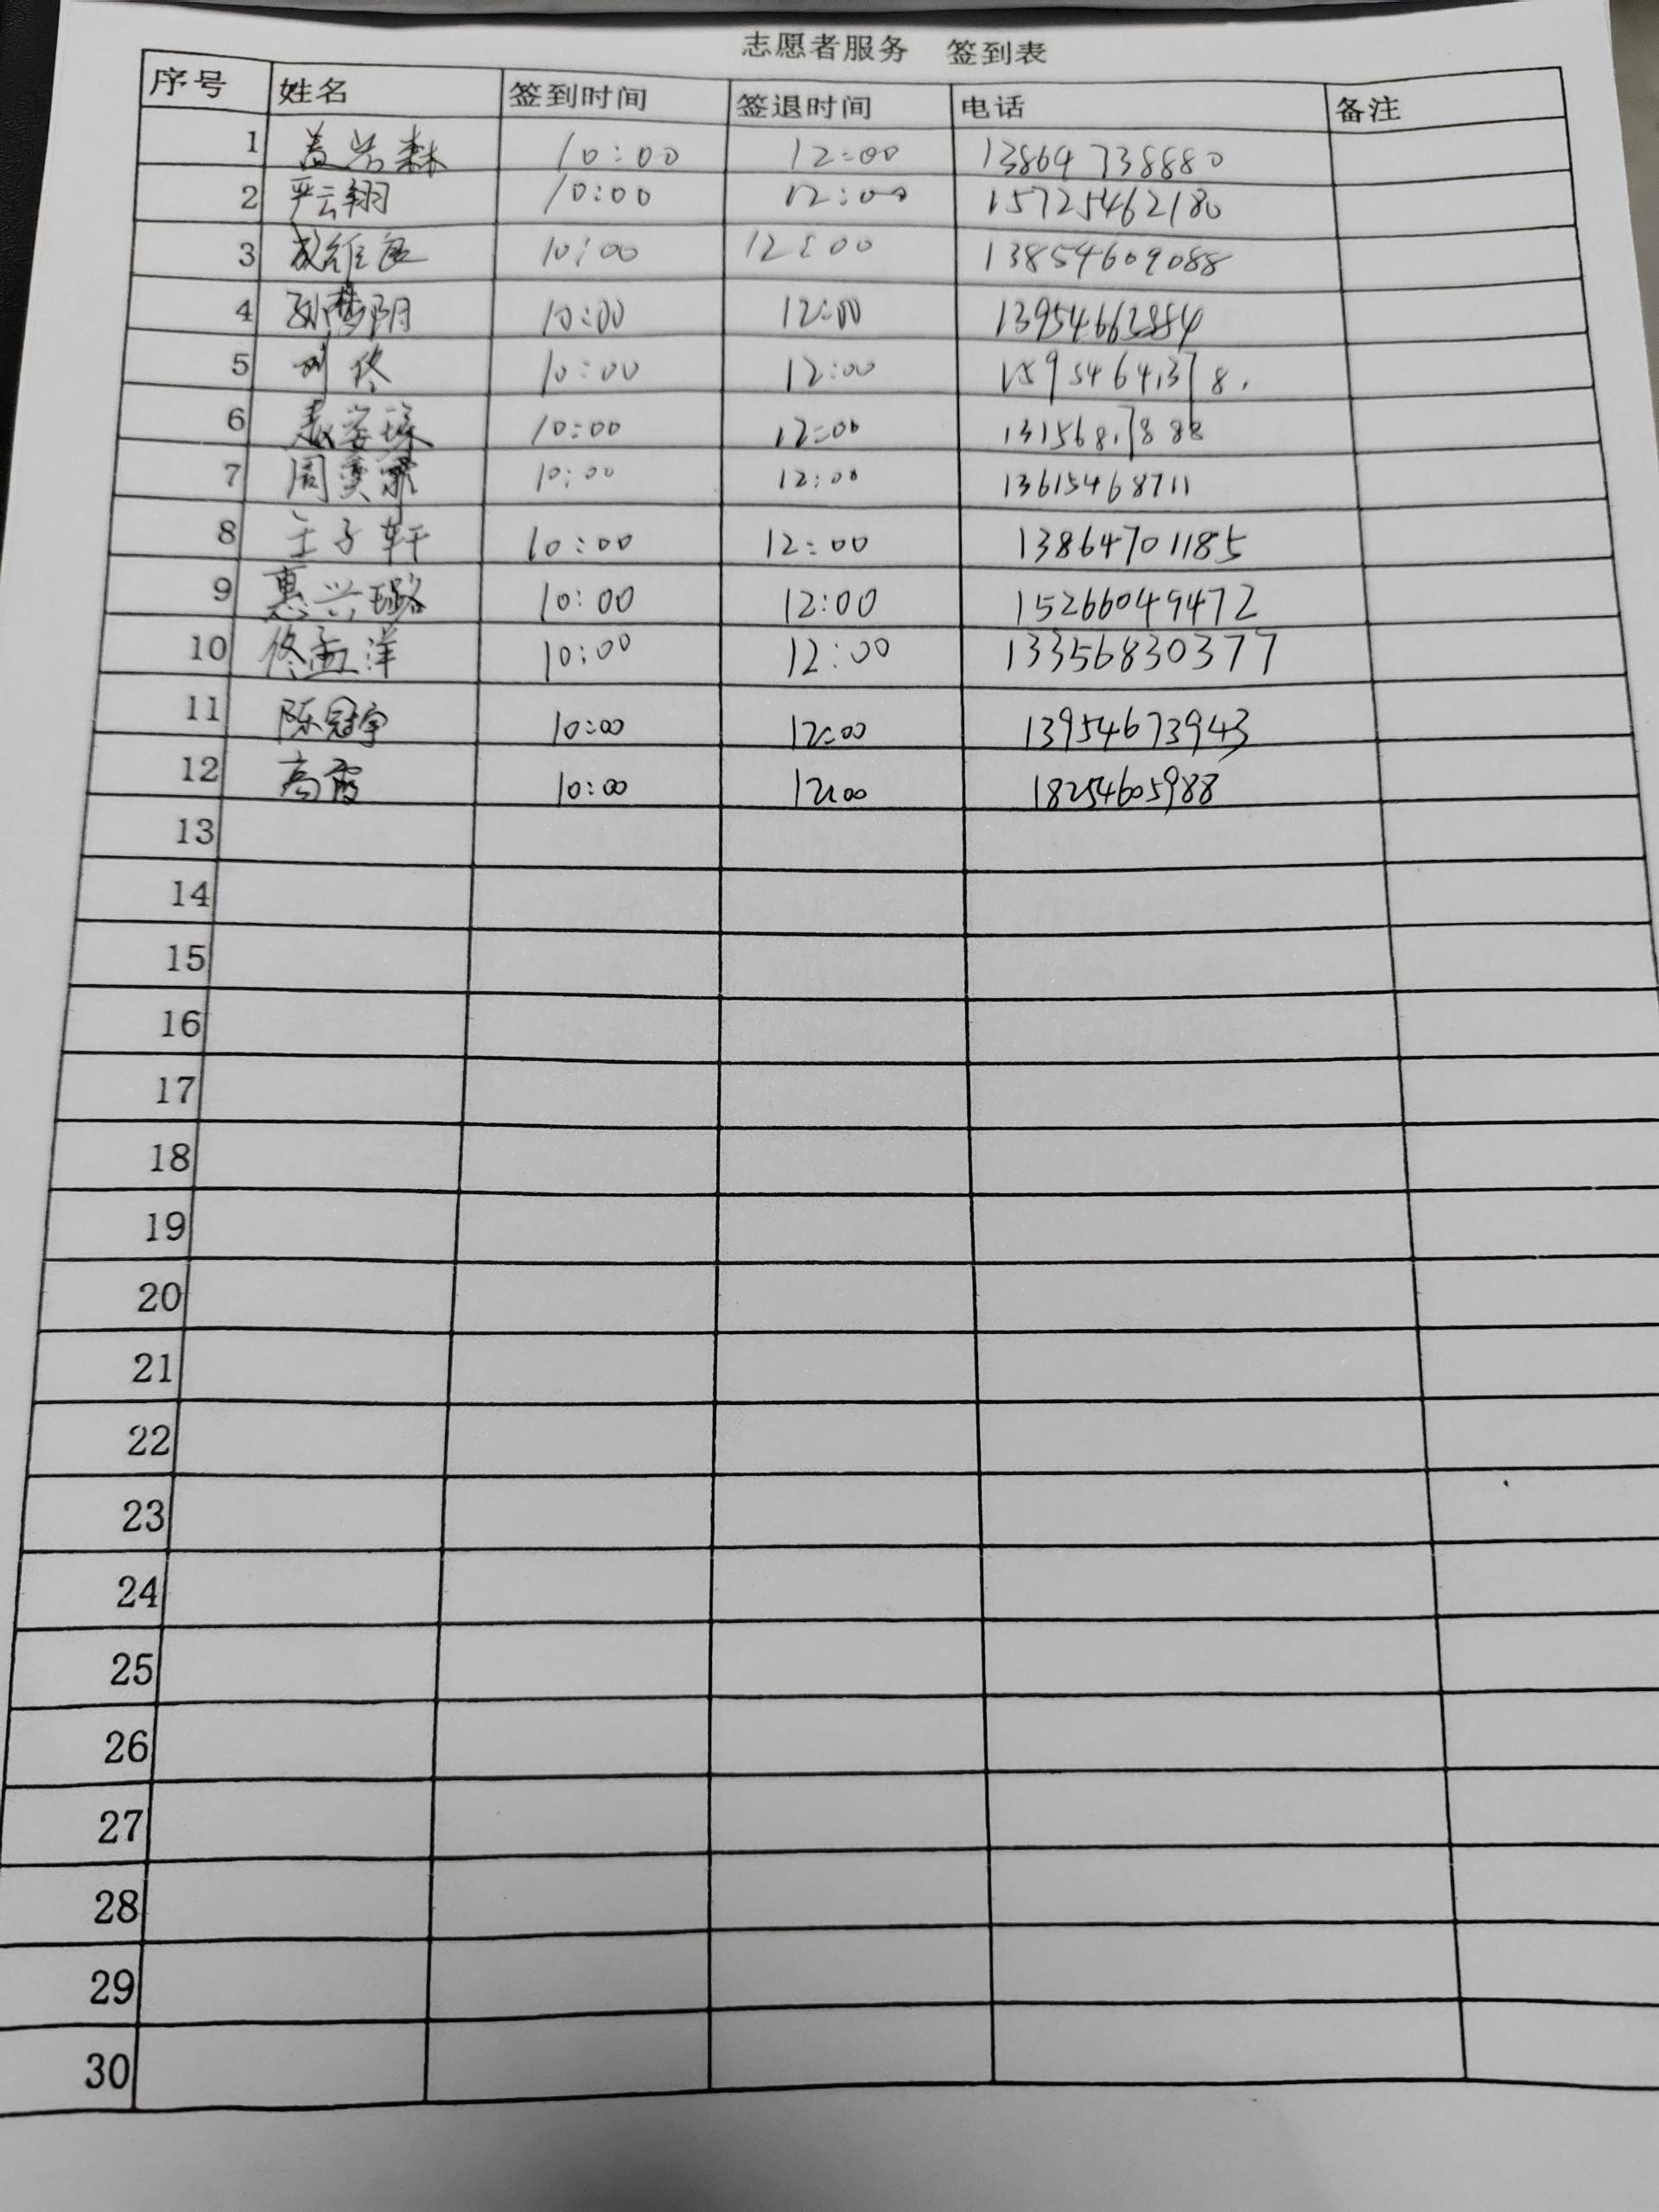 志愿者服务 签到表
序号 姓名 签到时间 签退时间 电话 备注
1 10:00 12:00 13864738880
2 严云翔 10:00 12:00 15725462180
3 10:00 12:00 13854609088
4 10:00 12:00
5 刘佟 10:00 12:00
6 10:00 12:00
7 周奕霏 10:00 12:00 13615468711
8 王子轩 10:00 12:00 13864701185
9 惠兴璐 10:00 12:00 15266049472
10 佟孟洋 10:00 12:00 13356830377
11 陈冠宇 10:00 12:00 13954673943
12 高霞 10:00 12:00 18254605988
13
14
15
16
17
18
19
20
21
22
23
24
25
26
27
28
29
30